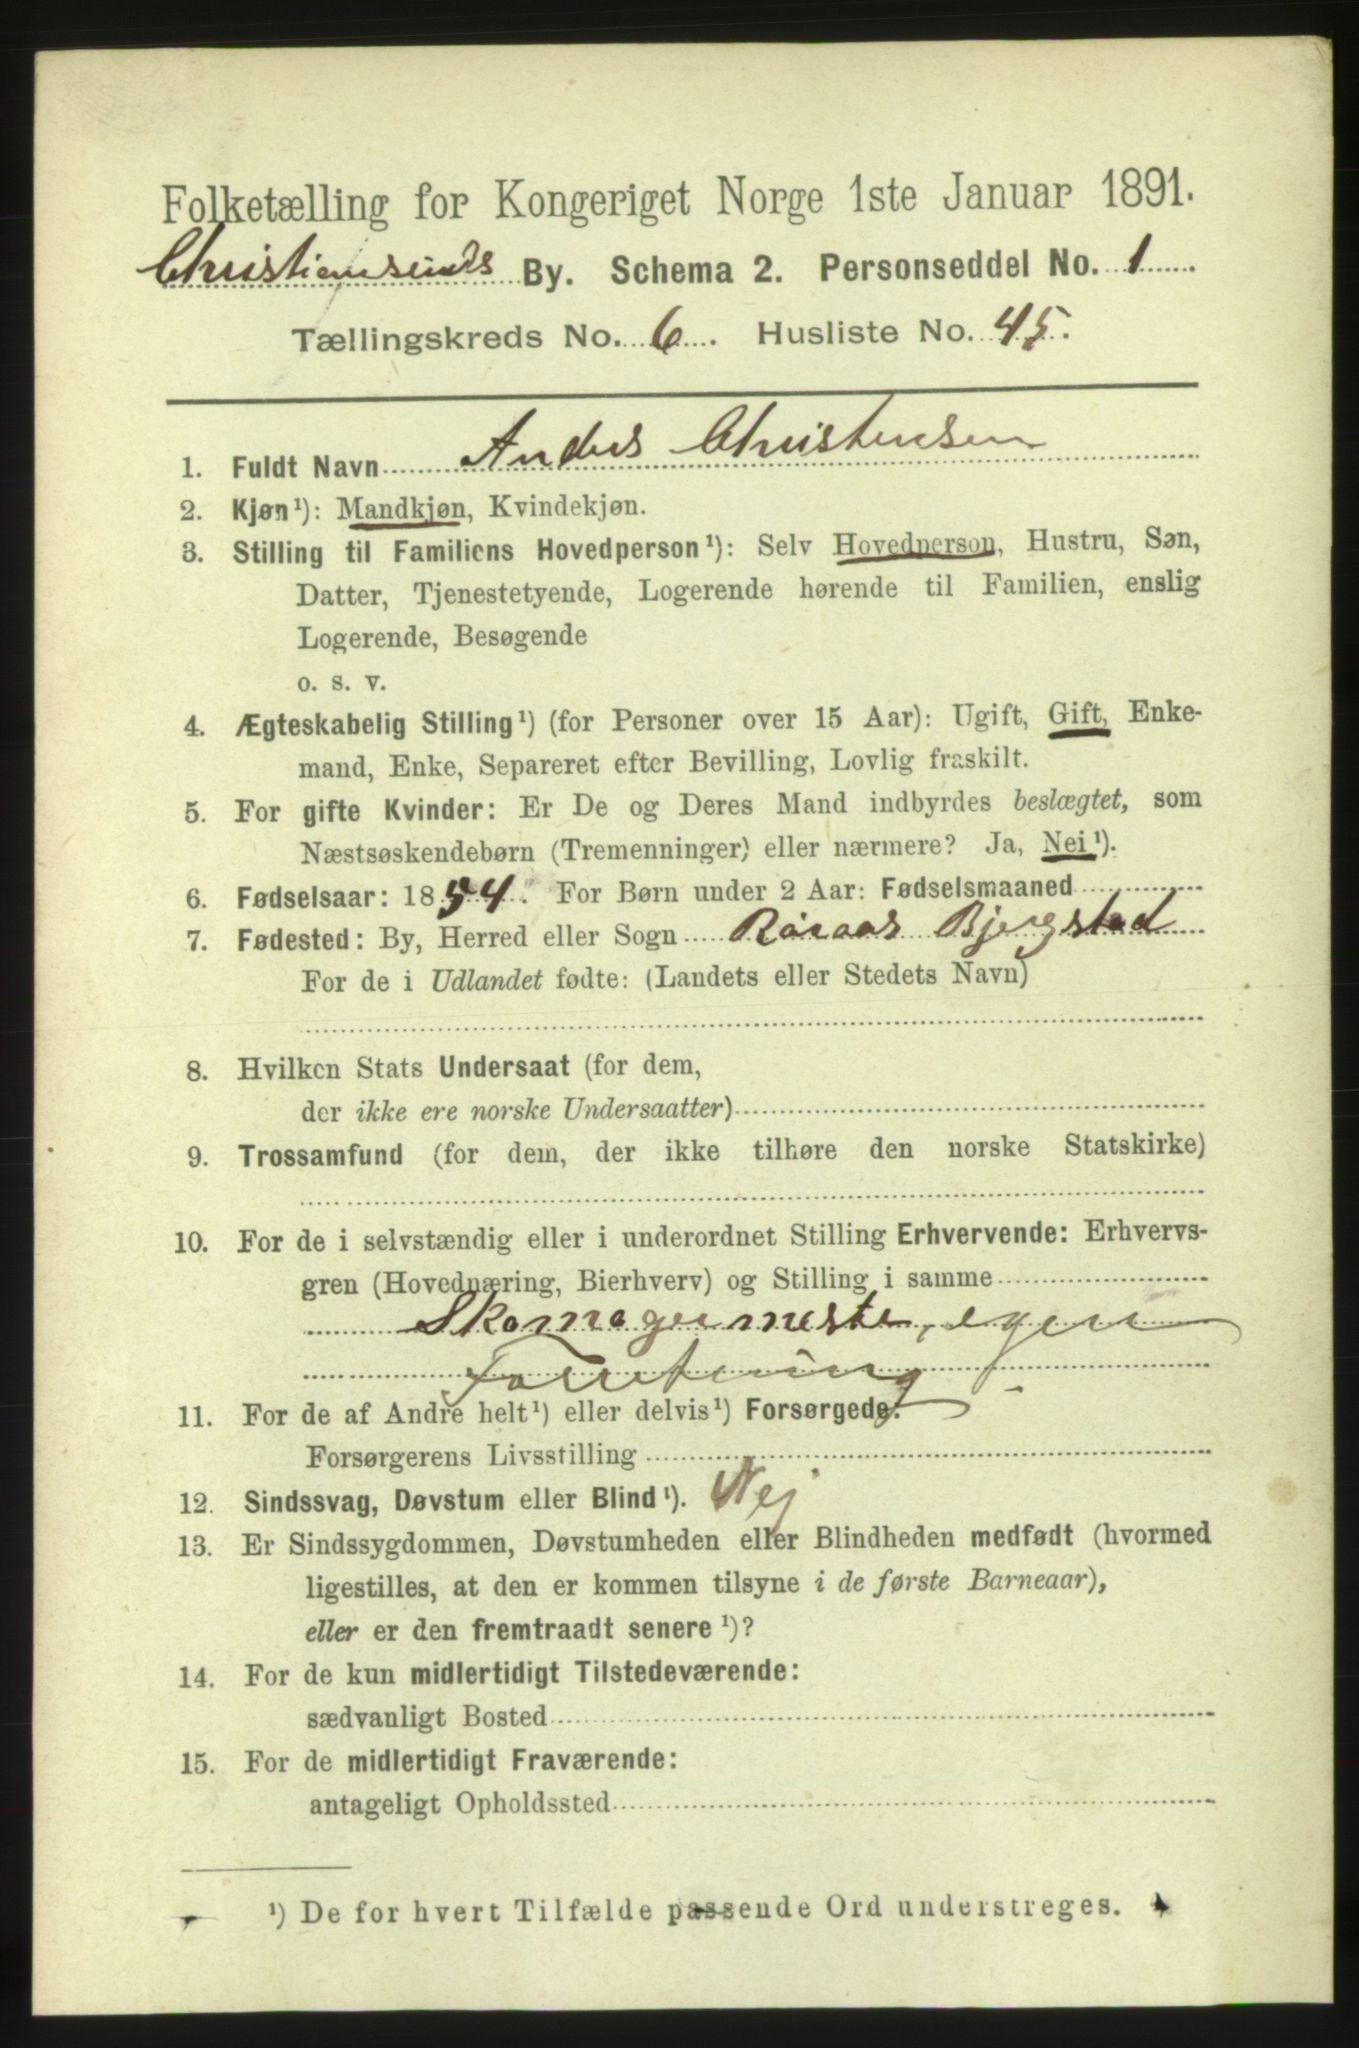 Folketælling for Kongeriget Norge 1ste Januar 1891.
Christiansunds By. Schema 2. Personseddel No. 1
Tællingskreds No. 6. Husliste No. 45.
1. Fuldt Navn Anders Christensen
2. Kjøn¹): Mandkjøn, Kvindekjøn.
3. Stilling til Familiens Hovedperson¹): Selv Hovedperson, Hustru, Søn,
Datter, Tjenestetyende, Logerende hørende til Familien, enslig
Logerende, Besøgende
o. s. v.
4. Ægteskabelig Stilling¹) (for Personer over 15 Aar): Ugift, Gift, Enke-
mand, Enke, Separeret efter Bevilling, Lovlig fraskilt.
5. For gifte Kvinder: Er De og Deres Mand indbyrdes beslægtet, som
Næstsøskendebørn (Tremenninger) eller nærmere? Ja, Nei¹).
6. Fødselsaar: 1854. For Børn under 2 Aar: Fødselsmaaned
7. Fødested: By, Herred eller Sogn Röraas Bjergstad
For de i Udlandet fødte: (Landets eller Stedets Navn)
8. Hvilken Stats Undersaat (for dem,
der ikke ere norske Undersaatter)
9. Trossamfund (for dem, der ikke tilhøre den norske Statskirke)
10. For de i selvstændig eller i underordnet Stilling Erhvervende: Erhvervs-
gren (Hovednæring, Bierhverv) og Stilling i samme
Skomagermester, egen
Forretning
11. For de af Andre helt¹) eller delvis¹) Forsørgede.
Forsørgerens Livsstilling
12. Sindssvag, Døvstum eller Blind¹). Nej
13. Er Sindssygdommen, Døvstumheden eller Blindheden medfødt (hvormed
ligestilles, at den er kommen tilsyne i de første Barneaar),
eller er den fremtraadt senere¹)?
14. For de kun midlertidigt Tilstedeværende:
sædvanligt Bosted
15. For de midlertidigt Fraværende:
antageligt Opholdssted
¹) De for hvert Tilfælde passende Ord understreges.